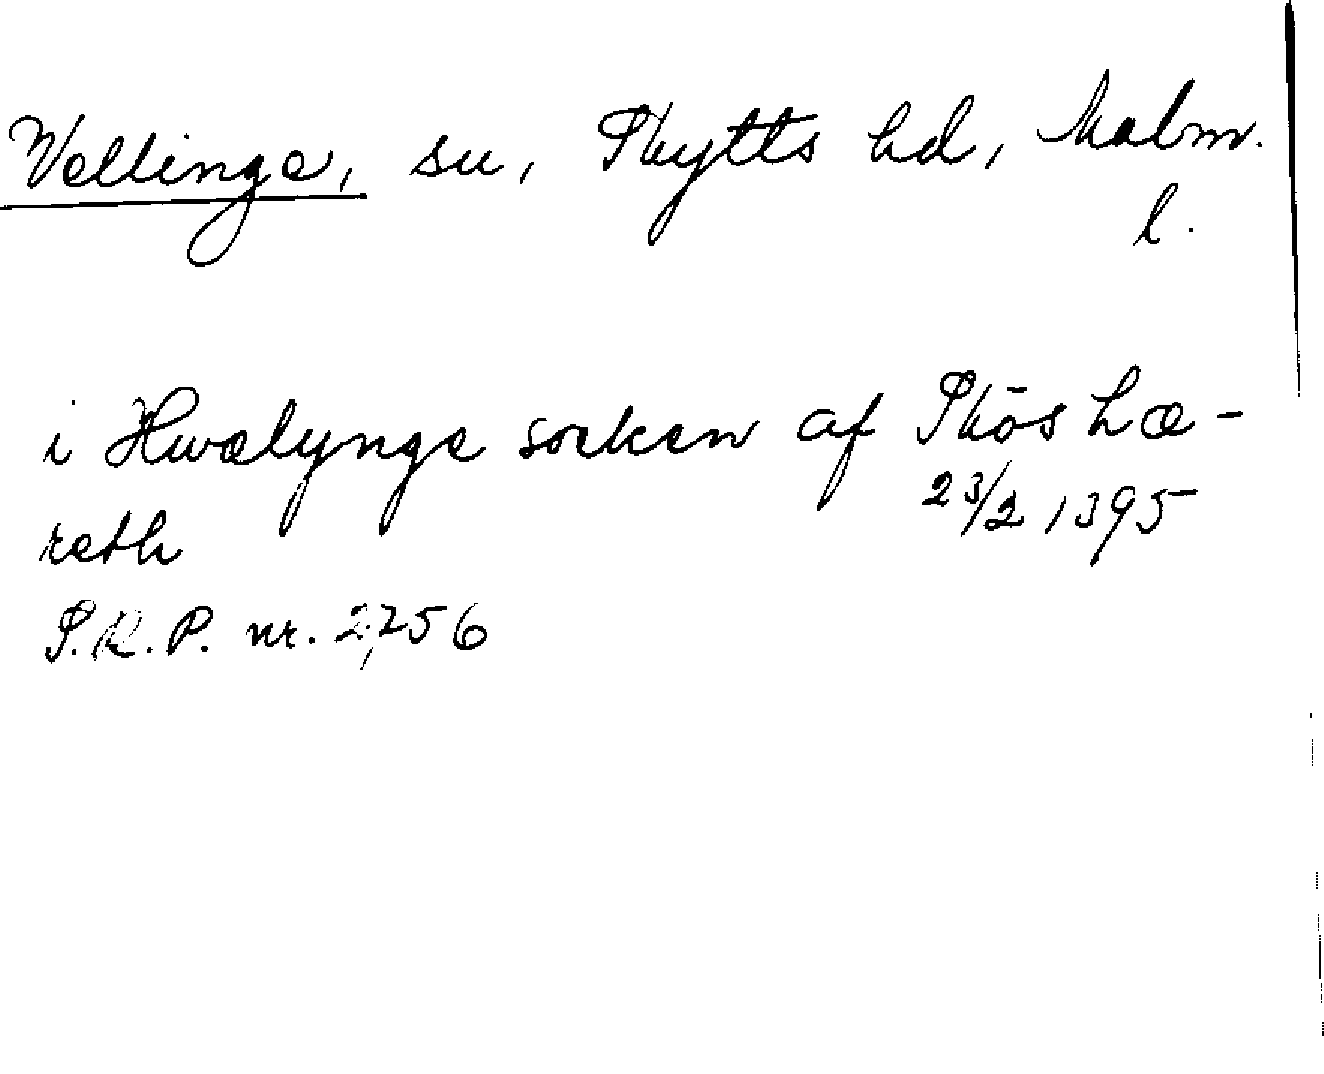 Vellinge, sn, Skytts hd, Malm.
l.
i Hwælynge sokken af Skös hæ-
reth 23/2 1395
S.R.P. nr. 2756